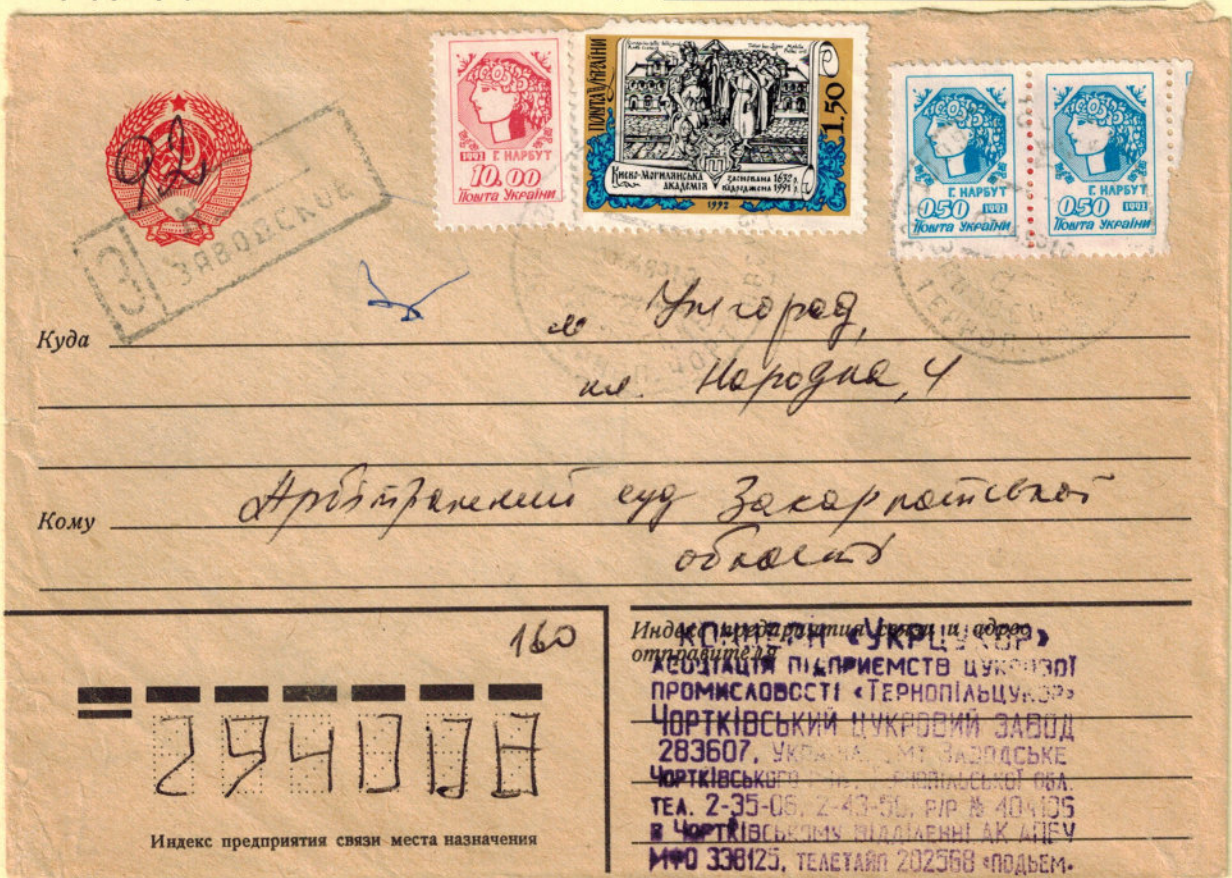 92
З ЗАВОДСКОЕ
1992 Г. НАРБУТ
10.00
Пошта України
ПОШТА УКРАЇНИ
1.50
Києво-Могилянська академія
заснована 1632 р.
відроджена 1991 р.
1992
Г. НАРБУТ
0.50 1992
Пошта України
Г. НАРБУТ
0.50 1992
Пошта України
Куда м Ужгород,
пл. Народна, 4
Кому Арбітражний суд Закарпатської
області
160
Индекс предприятия связи и адрес
отправителя
КОНЦЕРН «УКРЦУКОР»
АСОЦІАЦІЯ ПІДПРИЄМСТВ ЦУКРОВОЇ
ПРОМИСЛОВОСТІ «ТЕРНОПІЛЬЦУКОР»
ЧОРТКІВСЬКИЙ ЦУКРОВИЙ ЗАВОД
283607, УКРАЇНА, СМТ ЗАВОДСЬКЕ
ЧОРТКІВСЬКОГО Р-НУ, ТЕРНОПІЛЬСЬКОЇ ОБЛ.
ТЕЛ. 2-35-06, 2-43-50, Р/Р №
В ЧОРТКІВСЬКОМУ ВІДДІЛЕННІ АК АПБУ
МФО 338125, ТЕЛЕТАЙП 202568 «ПОДЬЕМ»
Индекс предприятия связи места назначения